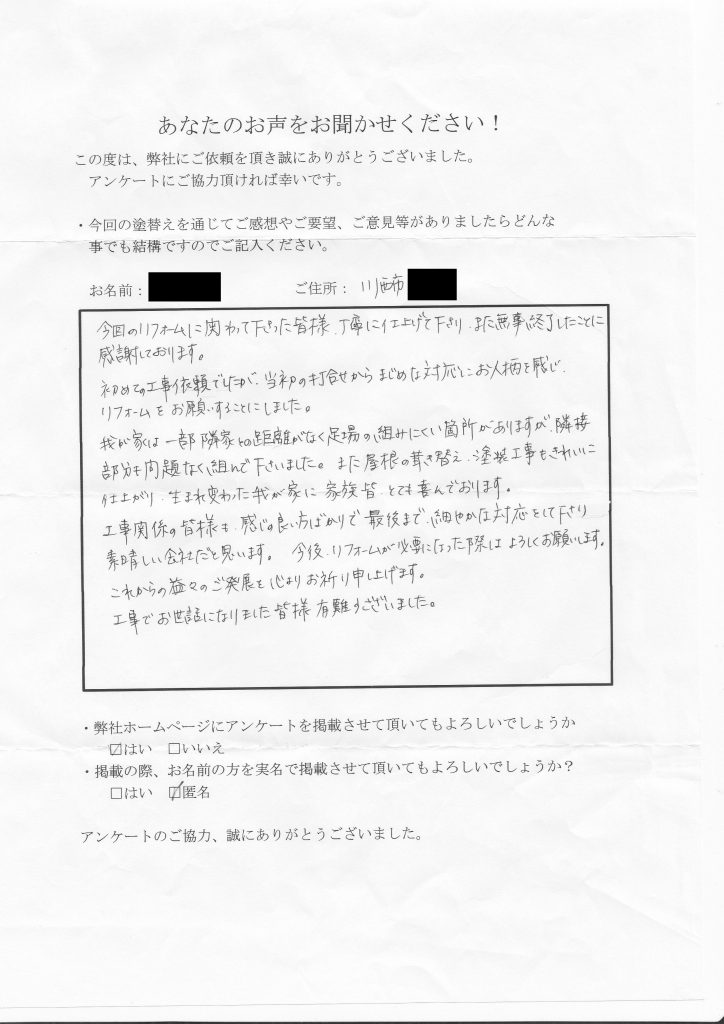 あなたのお声をお聞かせください！
この度は、弊社にご依頼を頂き誠にありがとうございました。
アンケートにご協力頂ければ幸いです。
・今回の塗替えを通じてご感想やご要望、ご意見等がありましたらどんな
事でも結構ですのでご記入ください。
お名前： ご住所： 川西市
今回のリフォームに関わって下さった皆様、丁寧に仕上げて下さり、また無事終了したことに
感謝しております。
初めての工事依頼でしたが、当初の打合せからまじめな対応とお人柄を感じ、
リフォームをお願いすることにしました。
我が家は一部隣家との距離がなく足場の組みにくい箇所がありますが、隣接
部分も問題なく組んで下さいました。また屋根の葺き替え、塗装工事もきれいに
仕上がり、生まれ変わった我が家に家族皆、とても喜んでおります。
工事関係の皆様も、感じの良い方ばかりで最後まで、細やかな対応をして下さり
素晴しい会社だと思います。 今後、リフォームが必要になった際はよろしくお願いします。
これからの益々のご発展を心よりお祈り申し上げます。
工事でお世話になりました皆様有難うございました。
・弊社ホームページにアンケートを掲載させて頂いてもよろしいでしょうか
☑はい □いいえ
・掲載の際、お名前の方を実名で掲載させて頂いてもよろしいでしょうか？
□はい ☑匿名
アンケートのご協力、誠にありがとうございました。